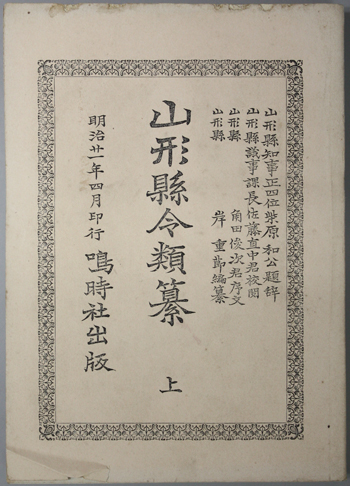 山形縣知事正四位柴原　和公題辞
山形縣議事課長佐藤直中君校閲
山形縣　角田俊次君序文
山形縣　岸　重節編纂
山形縣令類纂　上
明治廿一年四月印行　鳴時社出版